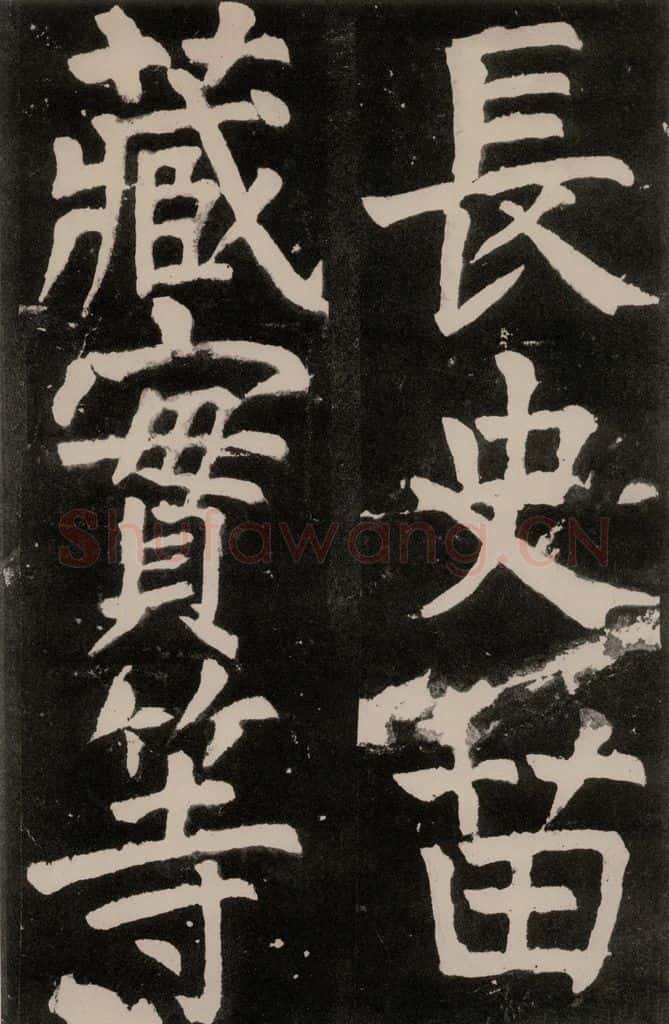 長史苗
藏實等
Shufawang.CN